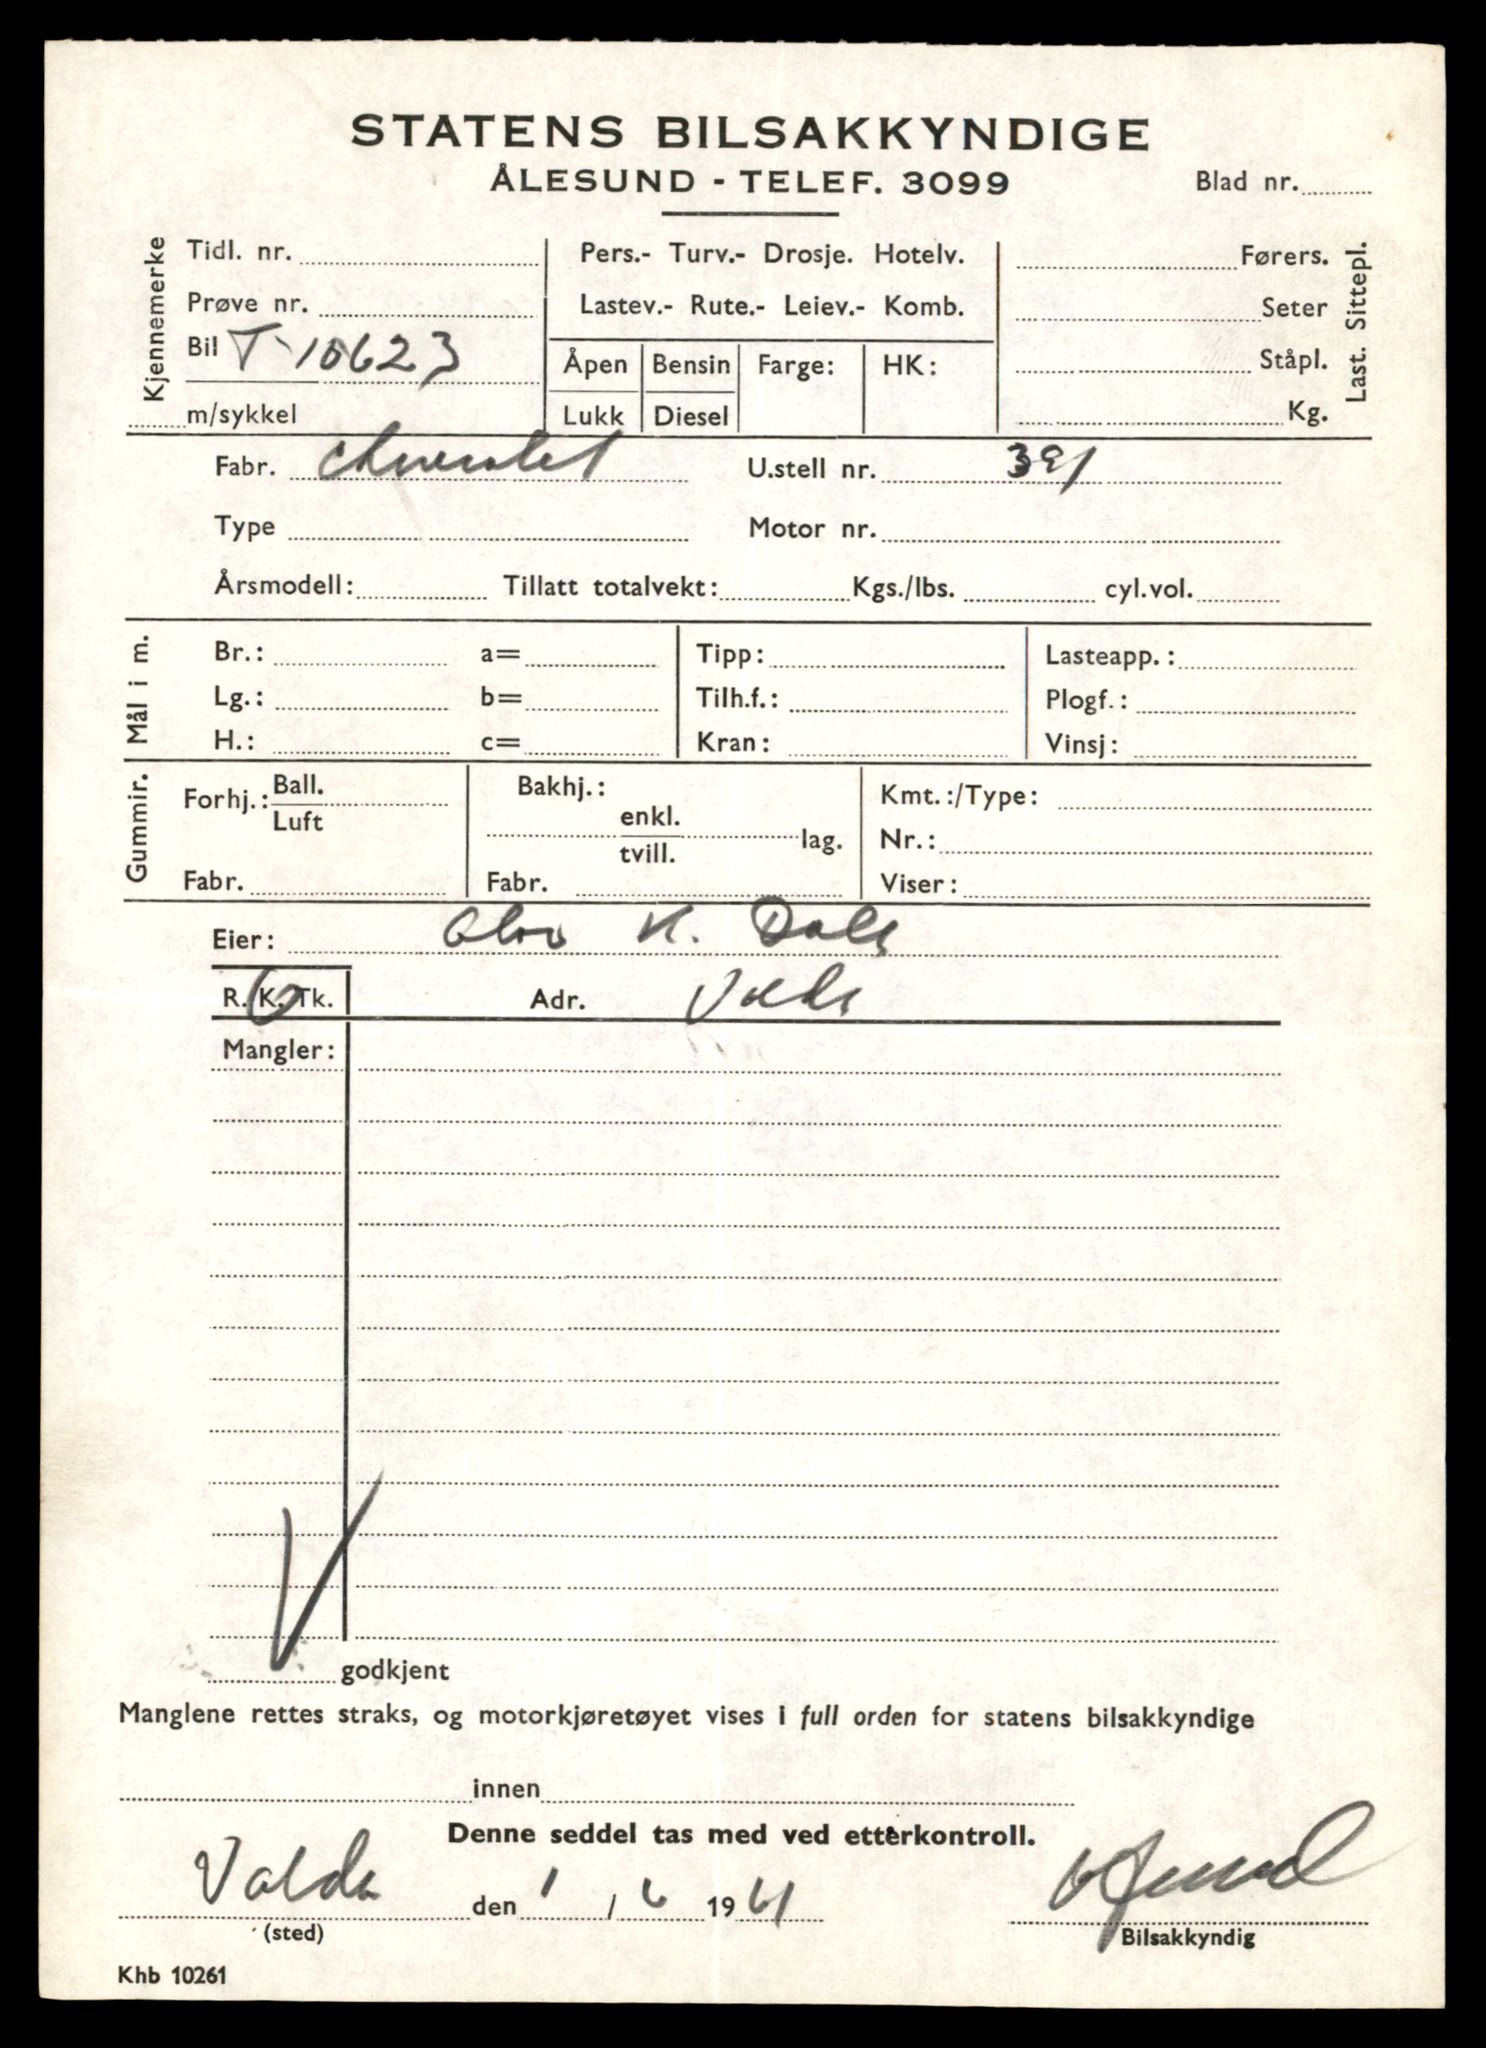 STATENS BILSAKKYNDIGE
ÅLESUND - TELEF. 3099
Blad nr.
Kjennemerke
Tidl. nr.
Prøve nr.
Bil T-10623
m/sykkel
Pers.- Turv.- Drosje. Hotelv.
Lastev.- Rute.- Leiev.- Komb.
Åpen Bensin Farge: HK:
Lukk Diesel
Førers.
Seter
Ståpl.
Kg.
Last. Sittepl.
Fabr. Chevrolet U.stell nr. 391
Type Motor nr.
Årsmodell: Tillatt totalvekt: Kgs./lbs. cyl.vol.
Mål i m.
Br.: a= Tipp: Lasteapp.:
Lg.: b= Tilh.f.: Plogf.:
H.: c= Kran: Vinsj:
Gummir.
Forhj.: Ball. Luft
Fabr.
Bakhj.:
enkl.
tvill. lag.
Fabr.
Kmt.:/Type:
Nr.:
Viser:
Eier: Olav K. Dale
R. K. Tk. Adr. Volda
Mangler:
V godkjent
Manglene rettes straks, og motorkjøretøyet vises i full orden for statens bilsakkyndige
innen
Denne seddel tas med ved etterkontroll.
Volda den 1 / 6 19 61
(sted)
Bilsakkyndig
Khb 10261